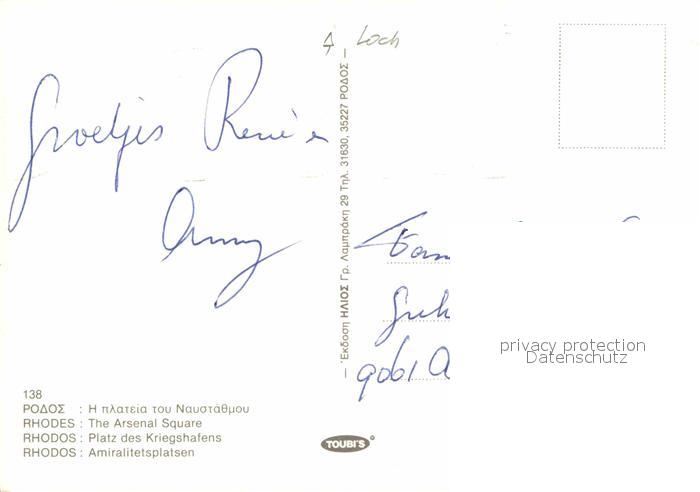 Loch
Groetjes Renée
Anny
Fam
9061 A
privacy protection
Datenschutz
— Έκδοση ΗΛΙΟΣ Γρ. Λαμπράκη 29 Τηλ. 31630, 35227 ΡΟΔΟΣ —
138
ΡΟΔΟΣ : Η πλατεία του Ναυστάθμου
RHODES : The Arsenal Square
RHODOS : Platz des Kriegshafens
RHODOS : Amiralitetsplatsen
TOUBI'S